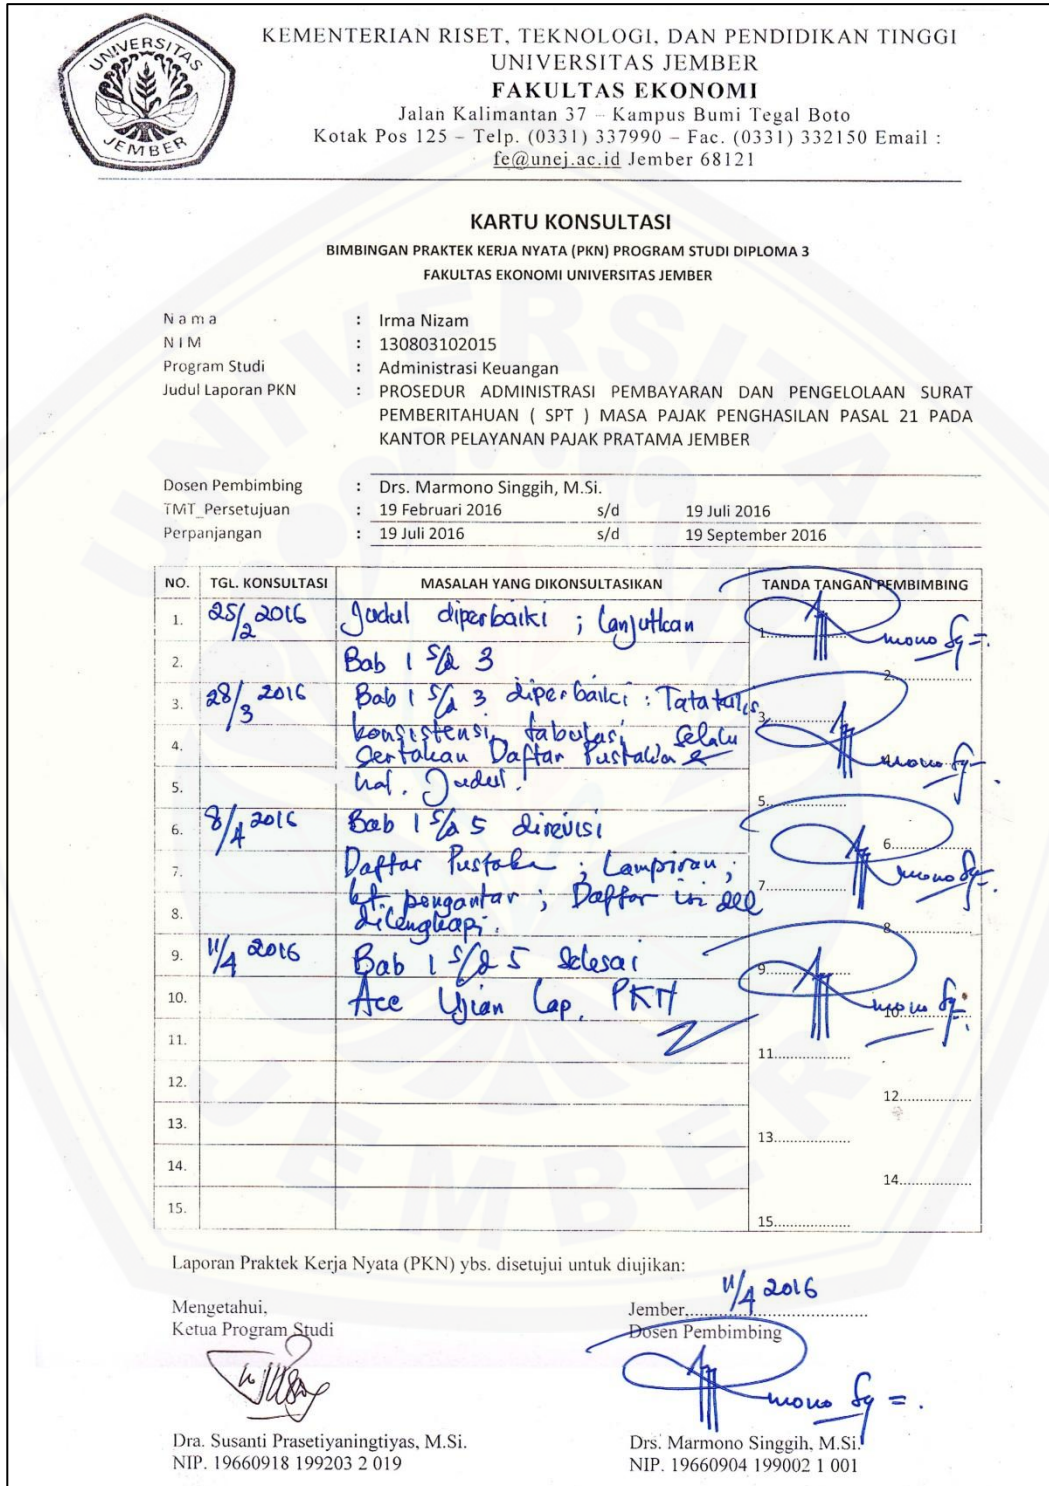 UNIVERSITAS
JEMBER
KEMENTERIAN RISET, TEKNOLOGI, DAN PENDIDIKAN TINGGI
UNIVERSITAS JEMBER
FAKULTAS EKONOMI
Jalan Kalimantan 37 – Kampus Bumi Tegal Boto
Kotak Pos 125 – Telp. (0331) 337990 – Fac. (0331) 332150 Email :
fe@unej.ac.id Jember 68121
KARTU KONSULTASI
BIMBINGAN PRAKTEK KERJA NYATA (PKN) PROGRAM STUDI DIPLOMA 3
FAKULTAS EKONOMI UNIVERSITAS JEMBER
N a m a : Irma Nizam
N I M : 130803102015
Program Studi : Administrasi Keuangan
Judul Laporan PKN : PROSEDUR ADMINISTRASI PEMBAYARAN DAN PENGELOLAAN SURAT
PEMBERITAHUAN ( SPT ) MASA PAJAK PENGHASILAN PASAL 21 PADA
KANTOR PELAYANAN PAJAK PRATAMA JEMBER
Dosen Pembimbing : Drs. Marmono Singgih, M.Si.
TMT_Persetujuan : 19 Februari 2016 s/d 19 Juli 2016
Perpanjangan : 19 Juli 2016 s/d 19 September 2016
NO. TGL. KONSULTASI MASALAH YANG DIKONSULTASIKAN TANDA TANGAN PEMBIMBING
1. 25/2 2016 Judul diperbaiki ; lanjutkan 1..................
2. Bab 1 s/d 3 2..................
3. 28/3 2016 Bab 1 s/d 3 diperbaiki : Tata tulis, 3..................
konsistensi, tabulasi, selalu
4. sertakan Daftar Pustaka & 4..................
5. hal. Judul. 5..................
6. 8/4 2016 Bab 1 s/d 5 direvisi 6..................
7. Daftar Pustaka ; Lampiran ; 7..................
kt. pengantar ; Daftar isi dll
8. dilengkapi. 8..................
9. 11/4 2016 Bab 1 s/d 5 selesai 9..................
10. Acc Ujian Lap. PKN 10..................
11. 11..................
12. 12..................
13. 13..................
14. 14..................
15. 15..................
Laporan Praktek Kerja Nyata (PKN) ybs. disetujui untuk diujikan:
Mengetahui, Jember, 11/4 2016
Ketua Program Studi Dosen Pembimbing
Dra. Susanti Prasetiyaningtiyas, M.Si. Drs. Marmono Singgih, M.Si.
NIP. 19660918 199203 2 019 NIP. 19660904 199002 1 001